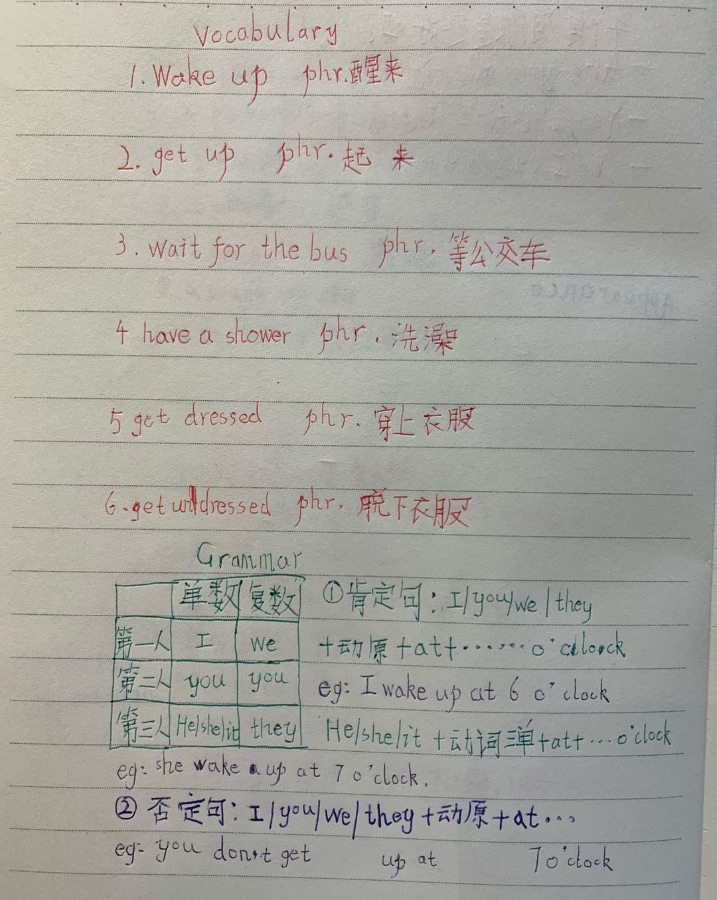 Vocabulary
1. Wake up phr. 醒来
2. get up phr. 起来
3. wait for the bus phr. 等公交车
4 have a shower phr. 洗澡
5 get dressed phr. 穿上衣服
6. get undressed phr. 脱下衣服
Grammar
单数 复数
第一人 I we
第二人 you you
第三人 He/she/it they
①肯定句: I/you/we/they
+动原+at+······o'clock
eg: I wake up at 6 o'clock
He/she/it +动词三单+at+···o'clock
eg: she wake up at 7 o'clock.
② 否定句: I/you/we/they+动原+at···
eg= you don't get up at 7 o'clock